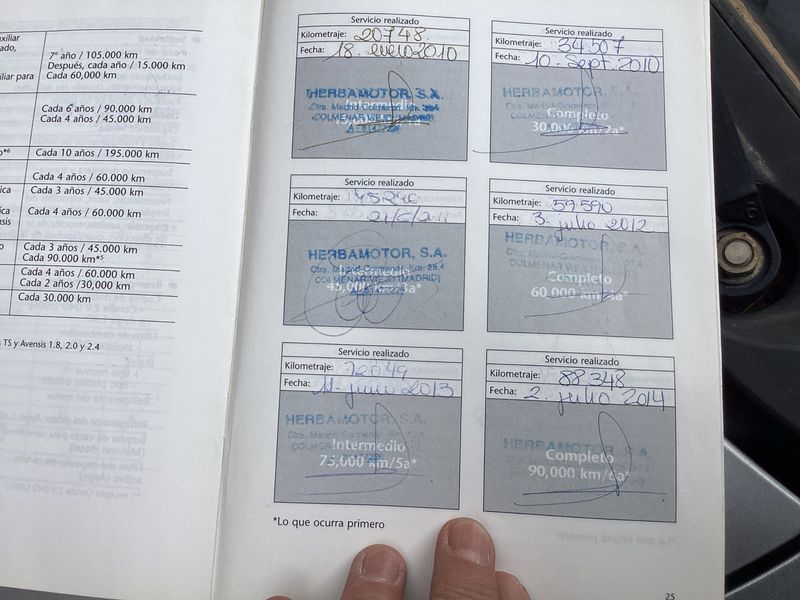 xiliar
ado,
7º año / 105.000 km
Después, cada año / 15.000 km
iliar para
Cada 60,000 km
Cada 6 años / 90.000 km
Cada 4 años / 45.000 km
o*6 Cada 10 años / 195.000 km
Cada 4 años / 60.000 km
ica Cada 3 años / 45.000 km
ica Cada 4 años / 60.000 km
nsis
o Cada 3 años / 45.000 km
Cada 90.000 km*5
Cada 4 años / 60.000 km
Cada 2 años /30,000 km
Cada 30.000 km
TS y Avensis 1.8, 2.0 y 2.4
Servicio realizado
Kilometraje: 20748
Fecha: 18. enero 2010
HERBAMOTOR, S.A.
Ctra. Madrid-Colmenar, Km.
Intermedio
COLMENAR VIEJO
Servicio realizado
Kilometraje: 34.507
Fecha: 10. Sept. 2010
HERBAMOTOR, S.A.
Completo
30,000 km/2a*
Servicio realizado
Kilometraje:
Fecha:
HERBAMOTOR, S.A.
Ctra. Madrid-Colmenar, Km.
Intermedio
COLMENAR VIEJO (MADRID)
45,000 km/3a*
Servicio realizado
Kilometraje: 59.590
Fecha: 3. julio 2012
HERBAMOTOR, S.A.
Completo
60,000 km/4a*
Servicio realizado
Kilometraje: 72049
Fecha: junio 2013
HERBAMOTOR, S.A.
Intermedio
75,000 km/5a*
Servicio realizado
Kilometraje: 88.348
Fecha: 2. julio 2014
HERBAMOTOR, S.A.
Completo
90,000 km/6a*
*Lo que ocurra primero
25